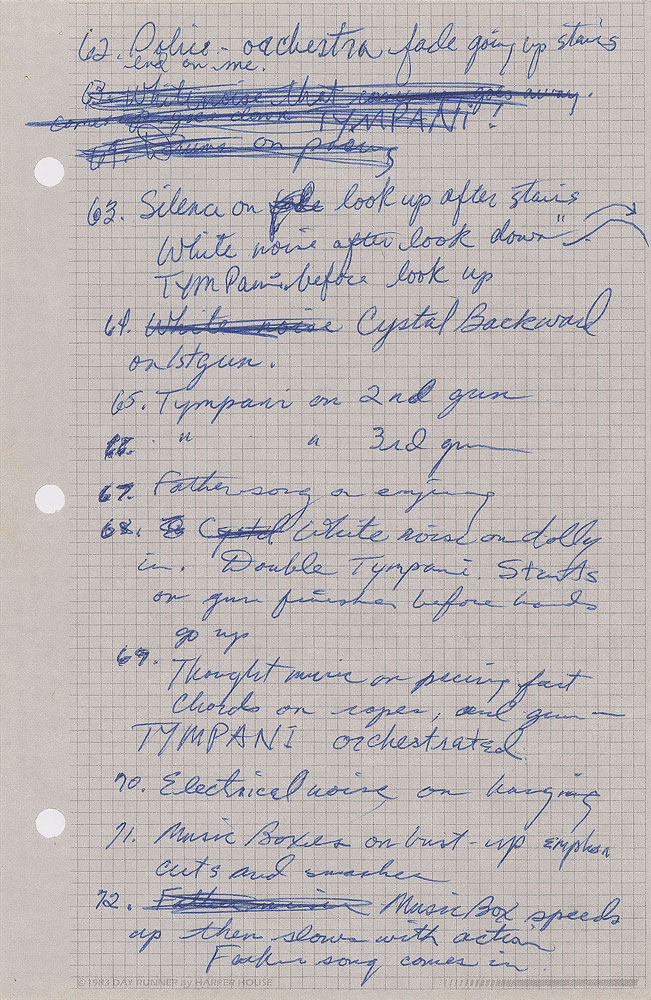 62. Police - orchestra fade going up stairs
end on me.
63. White noise that goes away.
comes up goes down TYMPANI!
64. Drums on phone
63. Silence on look up after stairs
White noise after look down"
TYMPani before look up
64. White noise Cystal Backward
on 1st gun.
65. Tympani on 2nd gun
66. " " 3rd gun
67. Father song on
68. Cystal White noise on dolly
in. Double Tympani. Starts
on gun finishes before hands
go up
69. Thought music on pacing fast
Chords on ropes, and gun —
TYMPANI orchestrated
70. Electrical noise on hanging
71. Music Boxes on bust-up
cuts and smashes
72. Father music Music Box speeds
up then slows with action
Father song comes in.
© 1983 DAY RUNNER by HARPER HOUSE